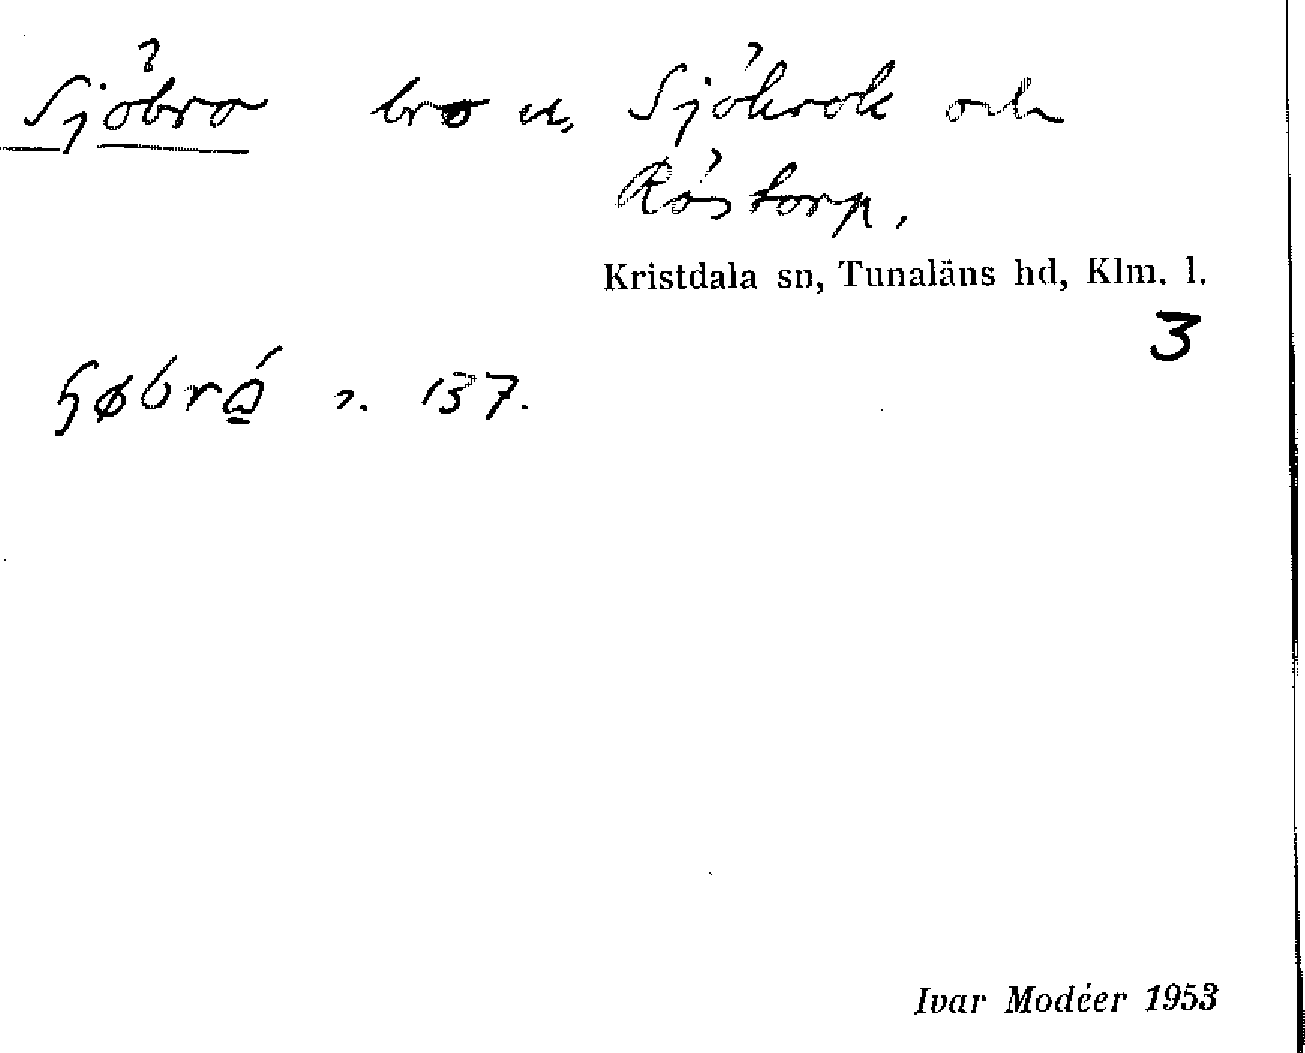 Sjöbro bro u. Sjökrok och
Röstorp.
Kristdala sn, Tunaläns hd, Klm. l.
3
137.
Ivar Modéer 1953